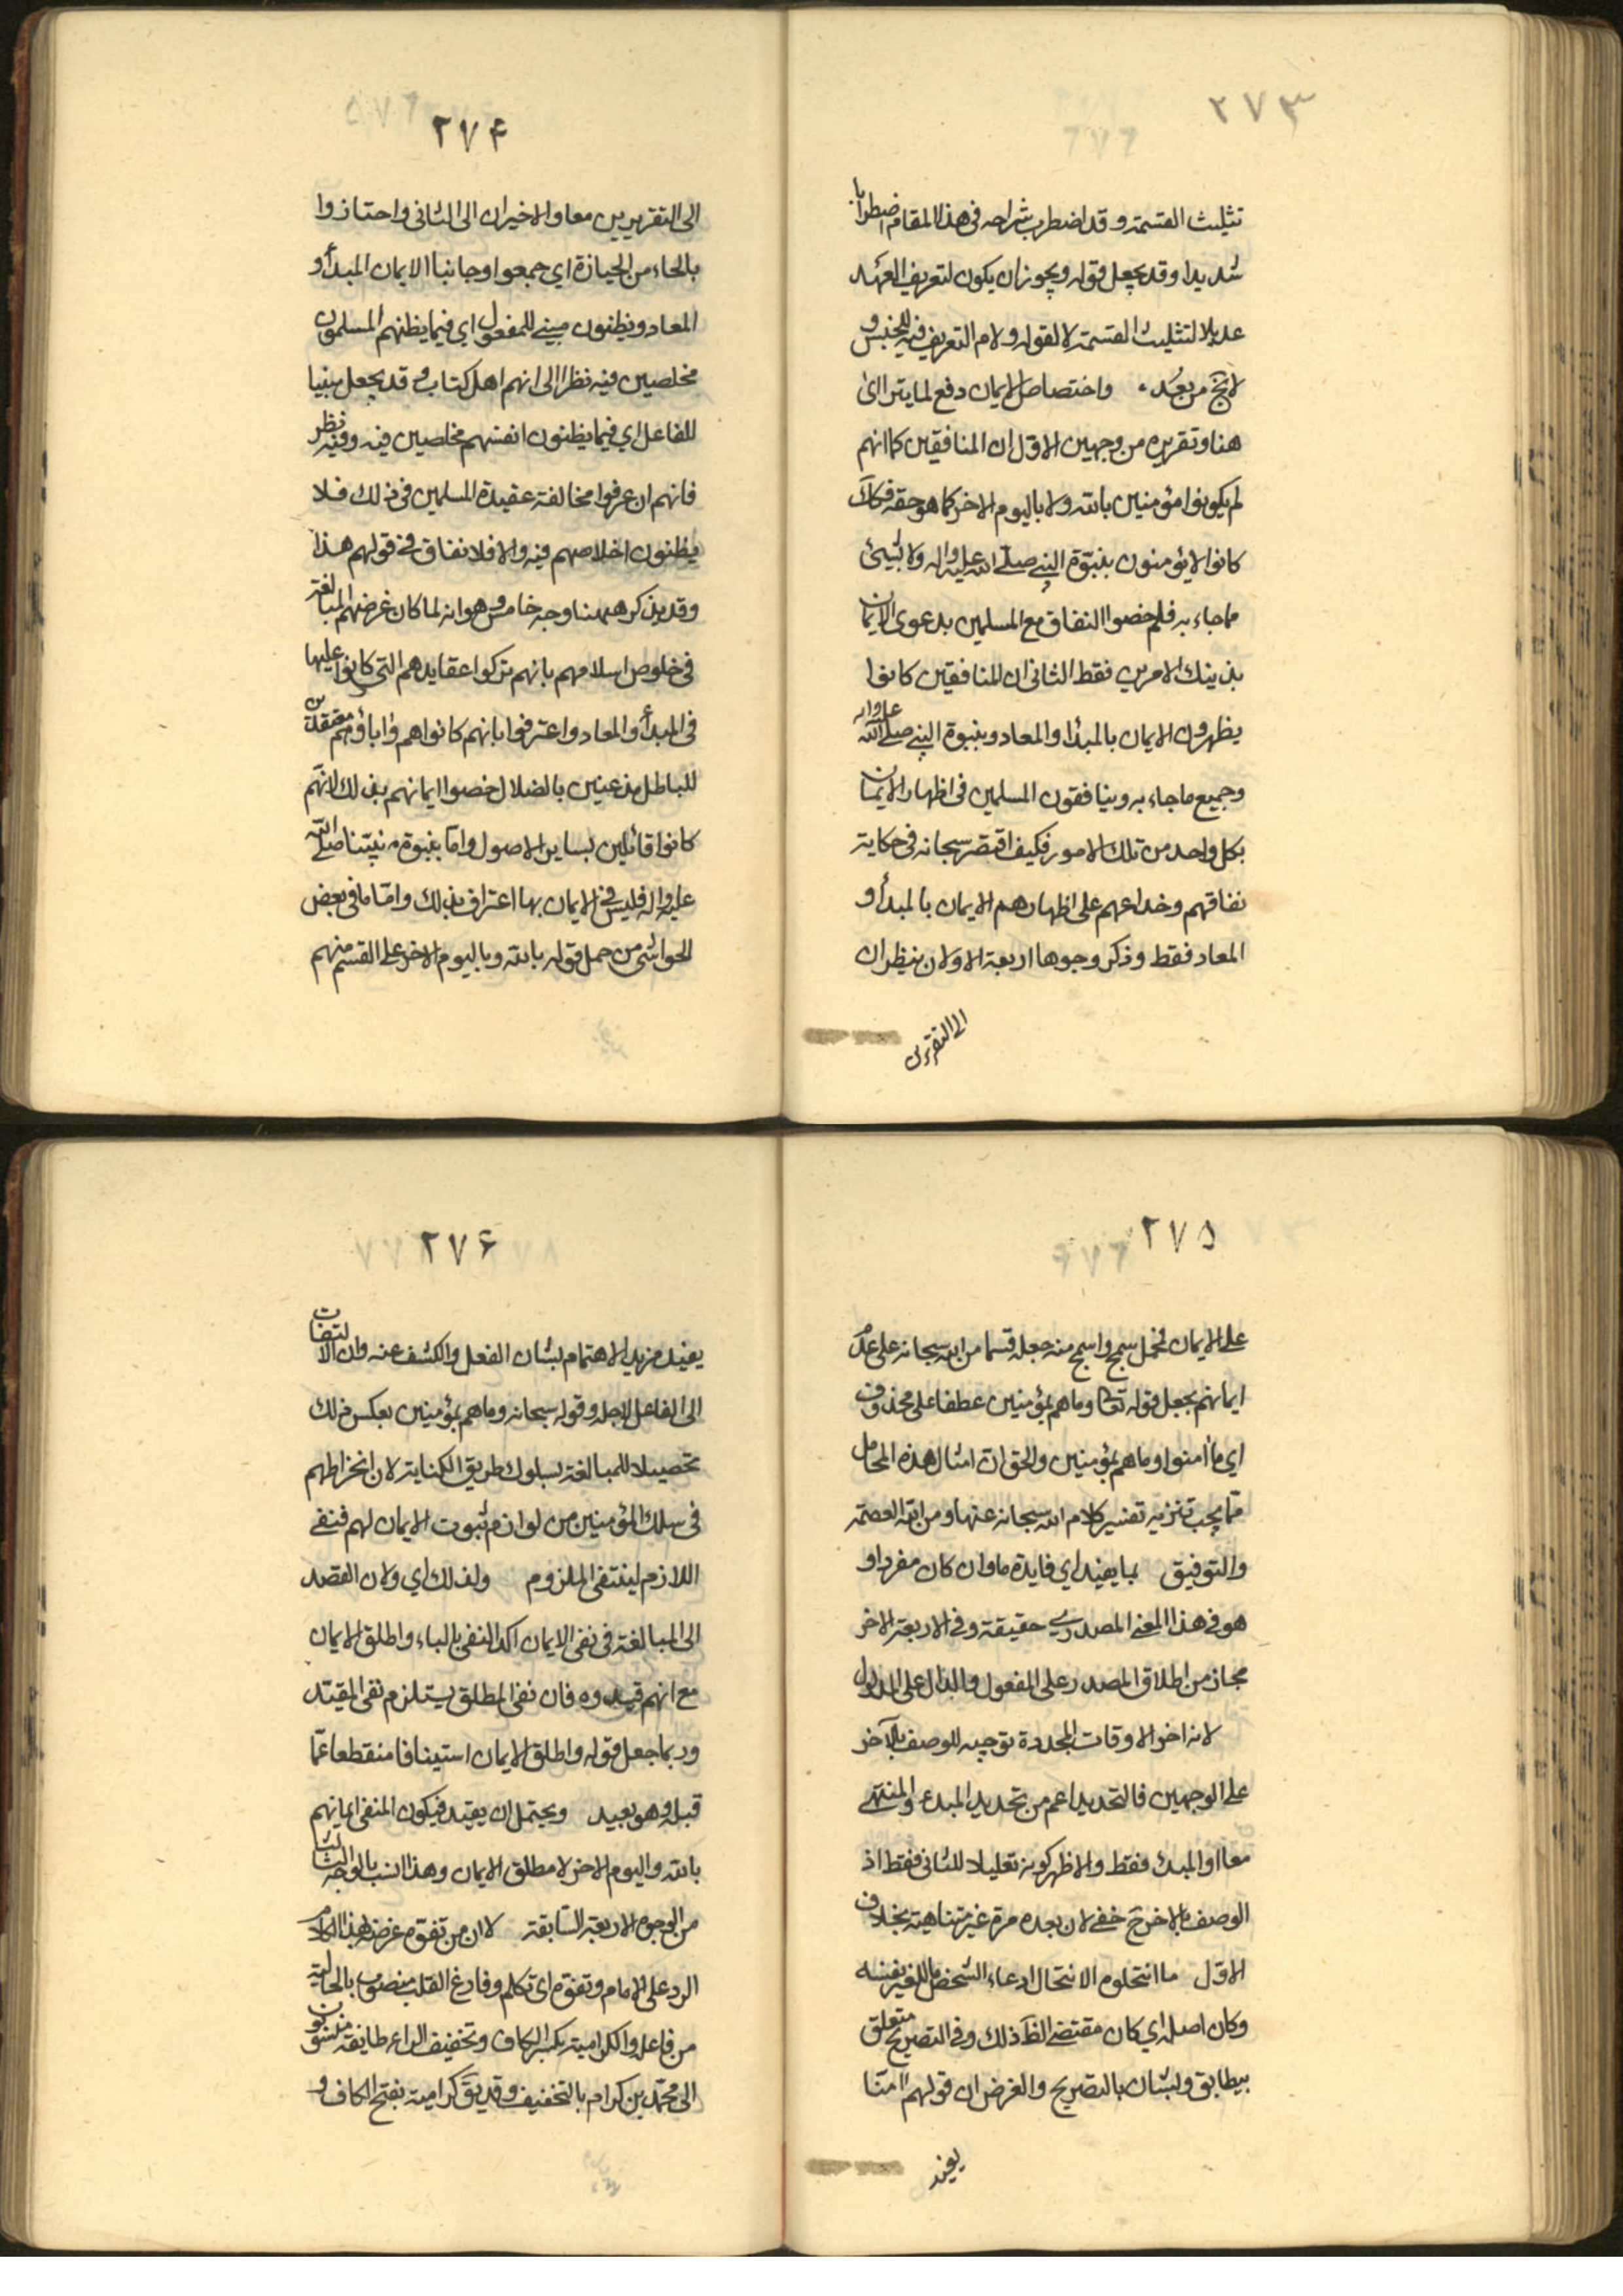 ٢٧٣
تثليث القسمة وقد اضطرب شراحه فى هذا المقام اضطرابا
شديدا وقد يجعل قوله ويجوز ان يكون لتعريف العهد
عديلا لتثليث القسمة لا لقوله ولام التعريف فيه للجنس و
لا يخ من بعد • واختصاص الايمان دفع لما يترااى
هنا وتقريره من وجهين الاول ان المنافقين كما انهم
لم يكونوا مؤمنين بالله ولا باليوم الاخر كما هو حقه فكك
كانوا لا يؤمنون بنبوة النبي صلى الله عليه واله ولا بشيئ
مما جاء به فلم خصوا النفاق مع المسلمين بدعوى الايمان
بذينك الامرين فقط الثانى ان المنافقين كانوا
يظهرون الايمان بالمبدأ والمعاد وبنبوة النبي صلى الله عليه واله
وجميع ما جاء به وينافقون المسلمين فى اظهار الايمان
بكل واحد من تلك الامور فكيف اقتصر سبحانه فى حكاية
نفاقهم وخداعهم على اظهارهم الايمان بالمبدأ و
المعاد فقط وذكر وجوها اربعة الاولان ينظران
الى التقريرين
٢٧۴
الى التقريرين معا والاخيران الى الثانى واحتازوا
بالحاء من الحيازة اي جمعوا وجانبا الايمان المبدأ و
المعاد ويظنون مبني للمفعول اي فيما يظنهم المسلمون
مخلصين فيه نظرا الى انهم اهل كتاب وقد يجعل مبنيا
للفاعل اي فيما يظنون انفسهم مخلصين فيه وفيه نظر
فانهم ان عرفوا مخالفة عقيدة المسلمين فى ذلك فلا
يظنون اخلاصهم فيه والا فلا نفاق في قولهم هذا
وقد يذكر ههنا وجه خامس وهو انه لما كان غرضهم المبالغة
فى خلوص اسلامهم بانهم تركوا عقايدهم التى كانوا عليها
فى المبدأ والمعاد واعترفوا بانهم كانوا هم واباؤهم معتقدين
للباطل مذعنين بالضلال خصوا ايمانهم بذلك لانهم
كانوا قائلين بساير الاصول واما بنبوة نبيتنا صلى الله
عليه واله فليس في الايمان بها اعتراف بذلك واما ما فى بعض
الحواشى من حمل قوله بالله وباليوم الاخر على القسم منهم
٢٧۵
على الايمان فمحمل سمج واسمج منه جعله قسما من الله سبحانه على عدم
ايمانهم بجعل قوله تعالى وما هم بمؤمنين عطفا على محذوف
اي ما أمنوا وما هم بمؤمنين والحق ان امثال هذه المحامل
مما يجب تنزيه تفسير كلام الله سبحانه عنها ومن الله العصمة
والتوفيق بما يفيد اي فايدة ما وان كان مفردا و
هو فى هذا المعنى المصدري حقيقة وفى الاربعة الاخر
مجاز من اطلاق المصدر على المفعول والدال على المدلول
لانه اخر الاوقات المحدودة توجيه للوصف بالآخر
على الوجهين فالتحديد اعم من تحديد المبدء والمنتهى
معا او المبدء فقط والاظهر كونه تعليلا للثانى فقط اذ
الوصف بالاخر ح خفي لان بعده مرة غير متناهية بخلاف
الاول ما انتحلوه الانتحال ادعاء الشخص ما للغير بنفسه
وكان اصله اي كان مقتضى الظ ذلك وفى التصريح متعلق
بيطابق ولشان بالتصريح والغرض ان قولهم امنا
يفيد
٢٧۶
يفيد مزيد الاهتمام بشان الفعل والكشف عنه وان الالتفات
الى الفاعل لاجله وقوله سبحانه وما هم بمؤمنين بعكس ذلك
تحصيلا للمبالغة بسلوك طريق الكناية لان انخراطهم
فى سلك المؤمنين من لوازم ثبوت الايمان لهم فنفي
اللازم لينتفى الملزوم ولذلك اي ولان القصد
الى المبالغة فى نفى الايمان اكد النفى بالباء واطلق الايمان
مع انهم قيدوه فان نفى المطلق يستلزم نفى المقيد
وربما جعل قوله واطلق الايمان استينافا منقطعا عما
قبله وهو بعيد ويحتمل ان يقيد فيكون المنفى ايمانهم
بالله واليوم الاخر لا مطلق الايمان وهذا انسب بالوجه الثالث
من الوجوه الاربعة السابقة لان من تفوه غرضه بهذا الكلام
الرد على الامام وتفوه اى تكلم وفارغ القلب منصوب بالحالية
من فاعله والكرامية بكسر الكاف وتخفيف الراء طايفة منسوبون
الى محمد بن كرام بالتخفيف وقد يق كرامية بفتح الكاف و